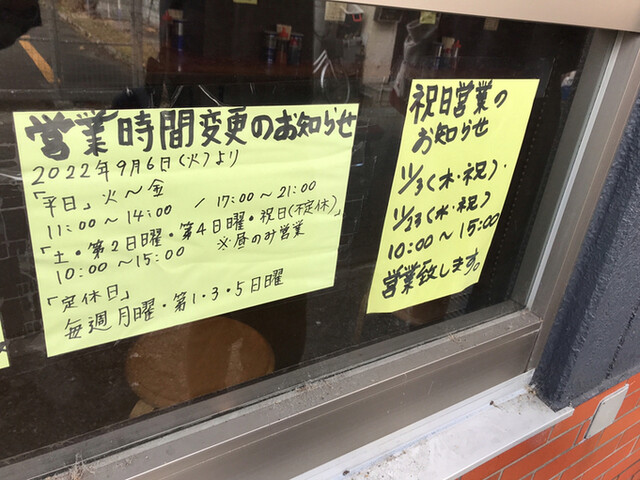 営業時間変更のお知らせ
2022年9月6日(火)より
「平日」火～金
11:00～14:00 / 17:00～21:00
「土・第2日曜・第4日曜・祝日(不定休)」
10:00～15:00 ※昼のみ営業
「定休日」
毎週月曜・第1・3・5日曜
祝日営業の
お知らせ
11/3(木・祝)・
11/23(水・祝)
10:00～15:00
営業致します。